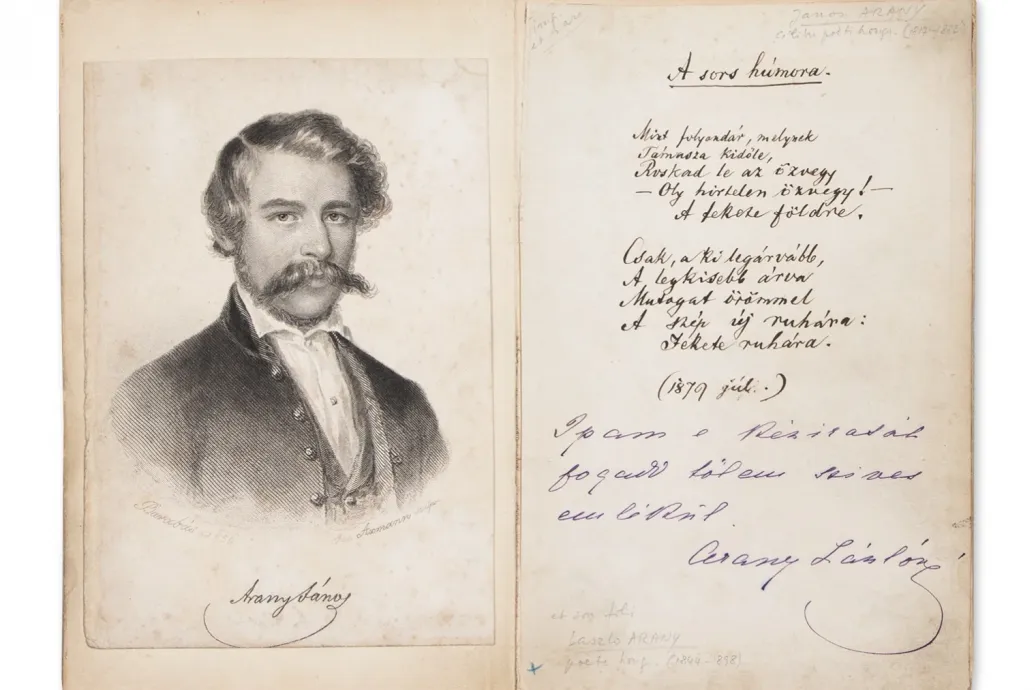 Barabás
Axmann
Arany János
János ARANY
A sors húmora.
Mint folyondár, melynek
Támasza kidőle,
Roskad le az özvegy
— Oly hirtelen özvegy! —
A fekete földre.
Csak, a ki legárvább,
A legkisebb árva
Mutogat örömmel
A szép új ruhára:
Fekete ruhára.
(1879 júl.)
Ipam e kéziratát
fogadd tőlem szives
emlékűl.
Arany Lászlóné
Laszlo ARANY
poète hong. (1844-898)